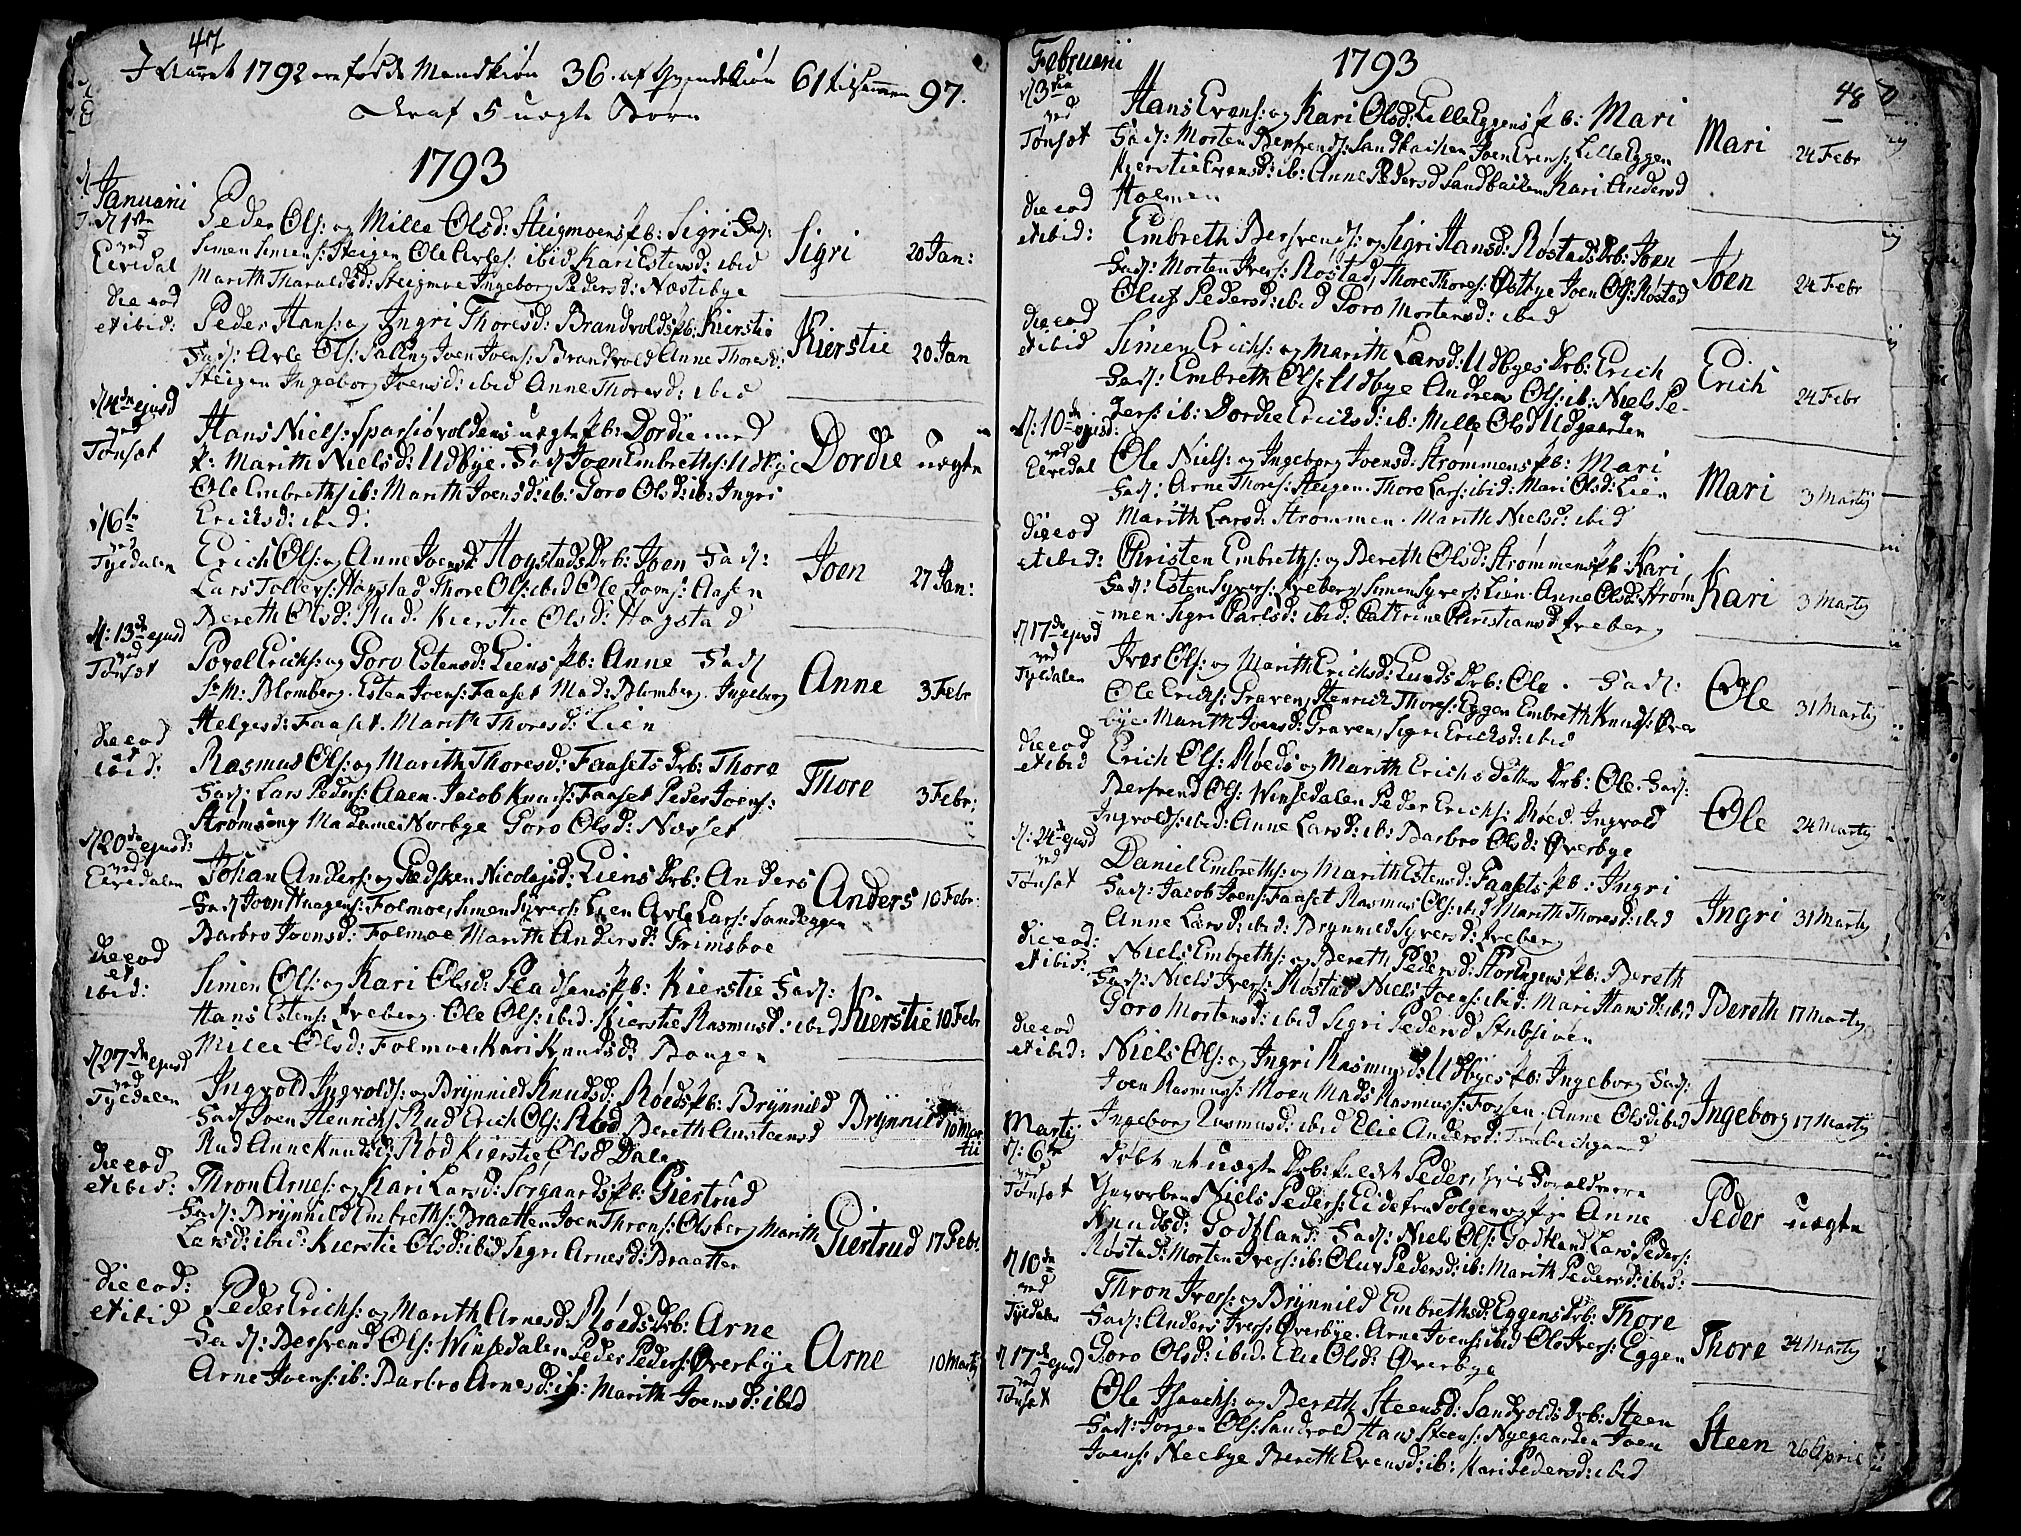 47
I Aaret 1792 ere fødde Mandkiøn 36. af Qvindekiøn 61 tilsammen 97.
Deraf 5 uegte Børn
1793
Januarii
d 1ste ved Elvedal
Peder Ols: og Mille Olsd: Steigmoens Pb: Sigri Fad:
Simen Simens: Steigen Ole Arles: ibid Kari Estensd: ibid
Marith Tharaldsd: Steigmoe Ingeborg Pedersd: Næstibye
Sigri 20 Jan:
die eod et ibid:
Peder Hans: og Ingri Thoresd: Brandvolds Pb: Kierstie
Fad: Arle Ols: Salling Joen Joens: Brandvold Anne Thoresd:
Steigen Ingeborg Joensd: ibid Anne Thoresd: ibid
Kierstie 20 Jan
d 4de ejusd ved Tønset
Hans Niels: Sparsiøvoldens uegte Pb: Dordie med
P: Marith Nielsd: Udbye. Fad: Joen Embreths: Udbye
Ole Embreths ib: Marith Joensd: ib: Goro Olsd: ib: Ingri
Ericksd: ibid:
Dordie uegte
d 6te ved Tyldalen
Erich Ols: og Anne Joensd: Hogstads Drb: Joen Fad:
Lars Tollers: Hogstad Thore Ols: ibid Ole Joens: Aasen
Bereth Olsd: Rud. Kierstie Olsd: Hogstad
Joen 27 Jan:
d: 13de ejusd ved Tønset
Povel Erichs: og Goro Estensd: Liens Pb: Anne Fad:
Sr M: Blomberg. Esten Joens: Faaset Mad: Blomberg. Ingeborg
Helgesd: Faaset. Marith Thoresd: Lien
Anne 3 Febr
die eod et ibid:
Rasmus Ols: og Marith Thoresd: Faasets Drb: Thore
Fad: Lars Peders: Aaen. Jacob Knuds: Faaset Peder Joens:
Strømseng Madame Norbye Goro Olsd: Næsset
Thore 3 Febr:
d 20de ejusd: ved Elvedalen
Johan Anders: og Giedsken Nicolajsd: Liens Drb: Anders
Fad: Joen Haagens: Folmoe, Simen Syvers: Lien Arle Lars: Sandeggen
Barbro Joensd: Folmoe Marith Andersd: Grimsboe
Anders 10 Febr:
die eod et ibid:
Simen Ols: og Kari Olsd: Pladsens Pb: Kierstie Fad:
Hans Estens: Freberg. Ole Ols: ibid. Kierstie Rasmusd: ibid
Mille Olsd: Folmoe Kari Knudsd: Bangen
Kierstie 10 Febr
d 27de ejusd ved Tyldalen
Ingvold Ingvolds: og Brynnild Knudsd: Røeds Pb: Brynnild
Fad: Joen Henrichs: Rud Erich Ols: Røed Bereth Amsteensd
Rud Anne Knudsd: Rød Kierstie Olsd Dalen
Brynnild 10 Martii
die eod et ibid:
Thron Arnes: og Kari Larsd: Sorgaards Pb: Giertrud
Fad: Brynnild Embreths: Braatten Joen Throns: Olsberg Marith
Larsd: ibid: Kierstie Olsd: ibid Sigri Arnesd: Braatten
Giertrud 17 Febr.
die eod: et ibid
Peder Erichs: og Marith Arnesd: Røeds Drb: Arne
Fad: Bersvend Ols: Winsedalen Peder Peders: Øverbye
Arne Joens: ib: Barbro Arnesd: ib: Marith Joensd: ibid
Arne 10 Martij
Februarii
1793
48
d 3die ved Tønset
Hans Evens: og Kari Olsd: Lilleeggens Pb: Mari
Fad: Morten Bersvends: Sandbaken Joen Evens: Lilleeggen
Kierstie Evensd: ib: Anne Pedersd Sandbaken Kari Andersd
Holmen
Mari 24 Febr
die eod et ibid:
Embreth Bersvends: og Sigri Hansd: Røstads Drb: Joen
Fad: Morten Ivers: Røstad, Thore Thores: Østbye Joen Ols: Røstad
Oluf Pedersd: ibid Goro Mortensd: ibid
Joen 24 Febr
die eod et ibid
Simen Erichs: og Marith Larsd: Udbyes Drb: Erich
Fad: Embreth Ols: Udbye Andrens Ols: ib: Niels Pe-
ders: ib: Dordie Ericksd: ib: Mille Olsd Udgaarden
Erich 24 Febr
d: 10de ejusd: ved Elvedal
Ole Niels: og Ingeborg Joensd: Strømmens Pb: Mari
Fad: Arne Thores: Steigen. Thore Lars: ibid: Mari Olsd: Lien
Marith Larsd: Strømmen. Marith Nielsd: ibid
Mari 3 Martij
die eod et ibid:
Christen Embreths: og Bereth Olsd: Strømmens Pb: Kari
Fad: Esten Syvers: Freberg Simen Syvers: Lien. Anne Olsd: Strøm
men. Sigri Carlsd: ibid: Cattrine Christiansd Freberg
Kari 3 Martij
d 17de ejusd ved Tyldalen
Iver Ols: og Marith Erichsd: Lunds Drb: Ole. Fad:
Ole Erichs: Graven, Henrich Thores: Eggen Embreth Knuds: Øver
bye Marith Joensd: Graven, Sigri Ericksd: ibid
Ole 31 Martij
die eod et ibid
Erich Ols: Røeds og Marith Erichs datters Drb: Ole. Fad:
Bersvend Ols: Winsedalen Peder Erichs: Røed. Ingvold
Ingvolds: ibid: Anne Larsd: ib: Barbro Olsd: Øverbye
Ole 24 Martij
d: 24de ejusd ved Tønset
Daniel Embreths: og Marith Estensd: Faasets Pb: Ingri
Fad: Jacob Joens: Faaset Rasmus Ols: ibid Marith Thoresd: ibid
Anne Larsd: ibid: Brynnild Syversd: Freberg
Ingri 31 Martij
die eod: et ibid:
Niels Embreths: og Bereth Pedersd: Storengens Pb: Bereth
Fad: Niels Ivers: Røstad Niels Joens: ibid: Mari Hansd: ibid
Goro Mortensd: ibid Sigri Pedersd Stubsiøen
Bereth 17 Martij
die eod et ibid:
Niels Ols: og Ingri Rasmusd: Udbyes Pb: Ingeborg Fad:
Joen Rasmuss: Moen Mads Rasmuss: Fossen. Anne Olsd ibid
Ingeborg Rasmusd: ibid Elie Andersd:
Ingeborg 17 Martij
Martij
d: 6te ved Tønset
døbt et uegte Drb: kaldet Peder, hvis Forældre ere
Ungkarlen Niels Peders: Eide fra Folgen og Pige Anne
Knudsd: Godtland. Fad: Niels Ols: Godtland Lars Peders:
Røstad: Morten Ivers: ib: Oluv Pedersd: ib: Marith Pedersd: ibid:
Peder uegte
d 10de ved Tyldalen
Thron Ivers: og Brynnild Embrethsd: Eggens Drb: Thore
Fad: Anders Ivers: Øverbye. Arne Joens: ibid Ols Ivers: Eggen
Goro Olsd: ibid. Elie Olsd: Øverbye
Thore 24 Martij
d 17de ejusd ved Tønset
Ole Isaachs: og Bereth Steensd: Sandvolds Drb: Steen
Fad: Jørgen Ols: Sandvold Hans Steens: Nygaarden Joen
Joens: Neebye Bereth Evensd: ib: Kari Pedersd: ibid
Steen 26 April